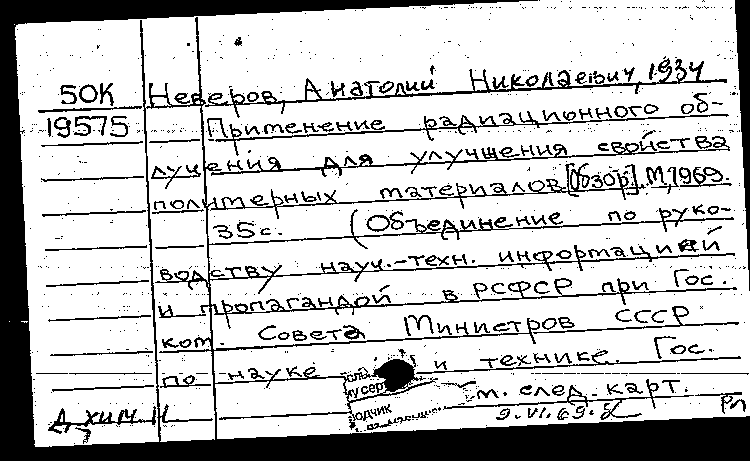 50К Неверов, Анатолий Николаевич, 1934
19575 Применение радиационного об-
лучения для улучшения свойства
полимерных материалов [Обзор]. М, 1969.
35 с. (Объединение по руко-
водству науч.-техн. информацией
и пропагандой в РСФСР при Гос.
ком. Совета Министров СССР
по науке и технике. Гос.
м. след. карт.
Д хим 11 9.VI.69. Рп